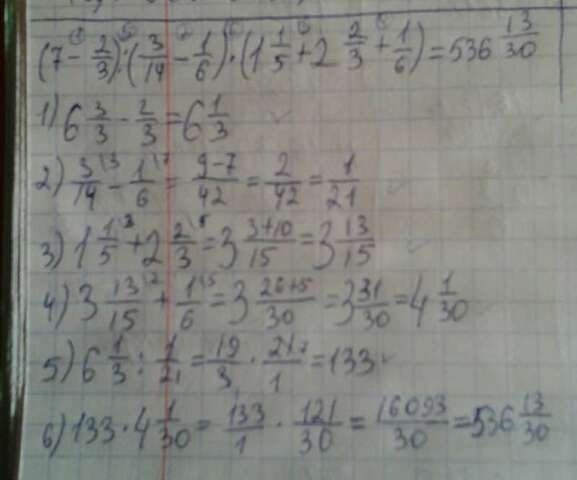 (7 - 2/3) : (3/14 - 1/6) · (1 1/5 + 2 2/3 + 1/6) = 536 13/30
1) 6 3/3 - 2/3 = 6 1/3
2) 3/14 - 1/6 = 9-7/42 = 2/42 = 1/21
3) 1 1/5 + 2 2/3 = 3 3+10/15 = 3 13/15
4) 3 13/15 + 1/6 = 3 26+5/30 = 3 31/30 = 4 1/30
5) 6 1/3 : 1/21 = 19/3 · 21/1 = 133
6) 133 · 4 1/30 = 133/1 · 121/30 = 16093/30 = 536 13/30